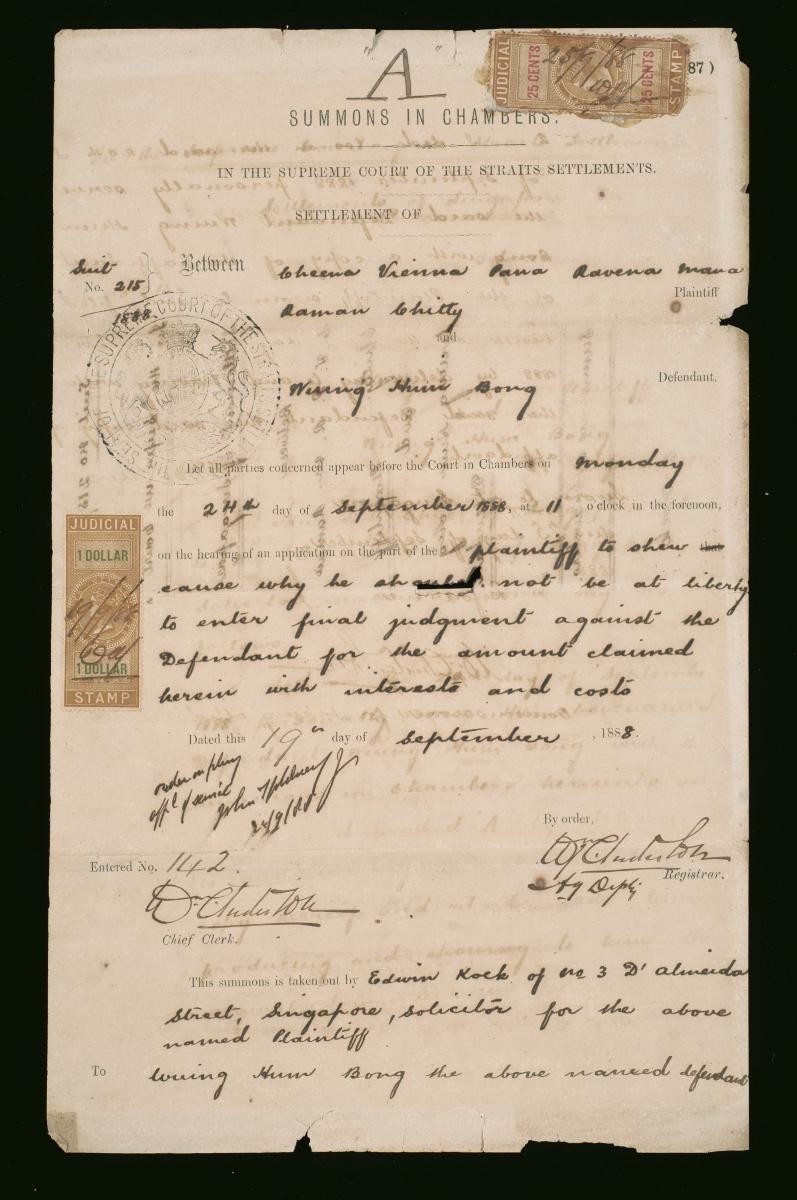 "A"
87)
JUDICIAL 25 CENTS 25/9/88 25 CENTS STAMP
SUMMONS IN CHAMBERS.
IN THE SUPREME COURT OF THE STRAITS SETTLEMENTS.
SETTLEMENT OF
Suit No. 215 1888
Between Cheena Vienna Pana Ravena Mana
Plaintiff
Raman Chitty
and
Wuing Hum Bong Defendant.
Let all parties concerned appear before the Court in Chambers on Monday
the 24th day of September 1888, at 11 o'clock in the forenoon,
on the hearing of an application on the part of the plaintiff to shew
cause why he should not be at liberty
to enter final judgment against the
Defendant for the amount claimed
herein with interests and costs
JUDICIAL
1 DOLLAR
19/9/88
1 DOLLAR
STAMP
Dated this 19th day of September, 1888.
order on plny
affl of service
24/9/88
By order,
Wm C Anderson
Ag Depty Registrar.
Entered No. 142.
Wm C Anderson
Chief Clerk.
This summons is taken out by Edwin Koek of No 3 D'Almeida
Street, Singapore, solicitor for the above
named Plaintiff
To Wuing Hum Bong the above named defendant